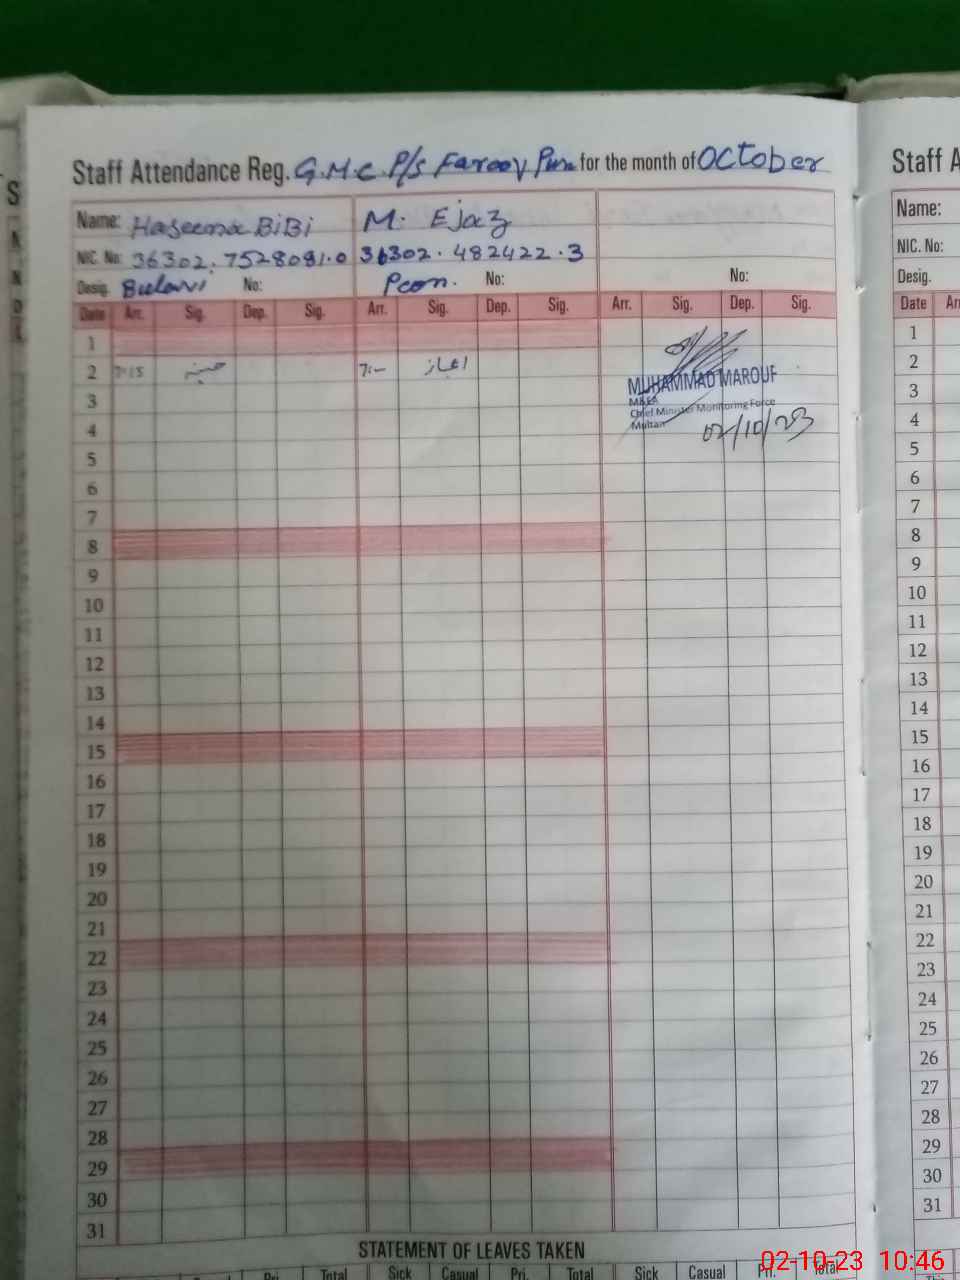 Staff Attendance Reg. G.M.C P/S Farooq Pura for the month of October
Name: Haseena BiBi M. Ejaz
NIC. No: 36302.7528081.0 36302.482422.3
Desig. No: Peon. No: No:
Date Arr. Sig. Dep. Sig. Arr. Sig. Dep. Sig. Arr. Sig. Dep. Sig.
1
2 7:15 حسینہ 7:- اعجاز
MUHAMMAD MAROUF
3
M&EA
Chief Minister Monitoring Force
4
Multan
02/10/23
5
6
7
8
9
10
11
12
13
14
15
16
17
18
19
20
21
22
23
24
25
26
27
28
29
30
31
STATEMENT OF LEAVES TAKEN
Casual Pri. Total Sick Casual Pri. Total Sick Casual Pri. Total
Staff A
Name:
NIC. No:
Desig.
Date Arr
1
2
3
4
5
6
7
8
9
10
11
12
13
14
15
16
17
18
19
20
21
22
23
24
25
26
27
28
29
30
31
02-10-23 10:46